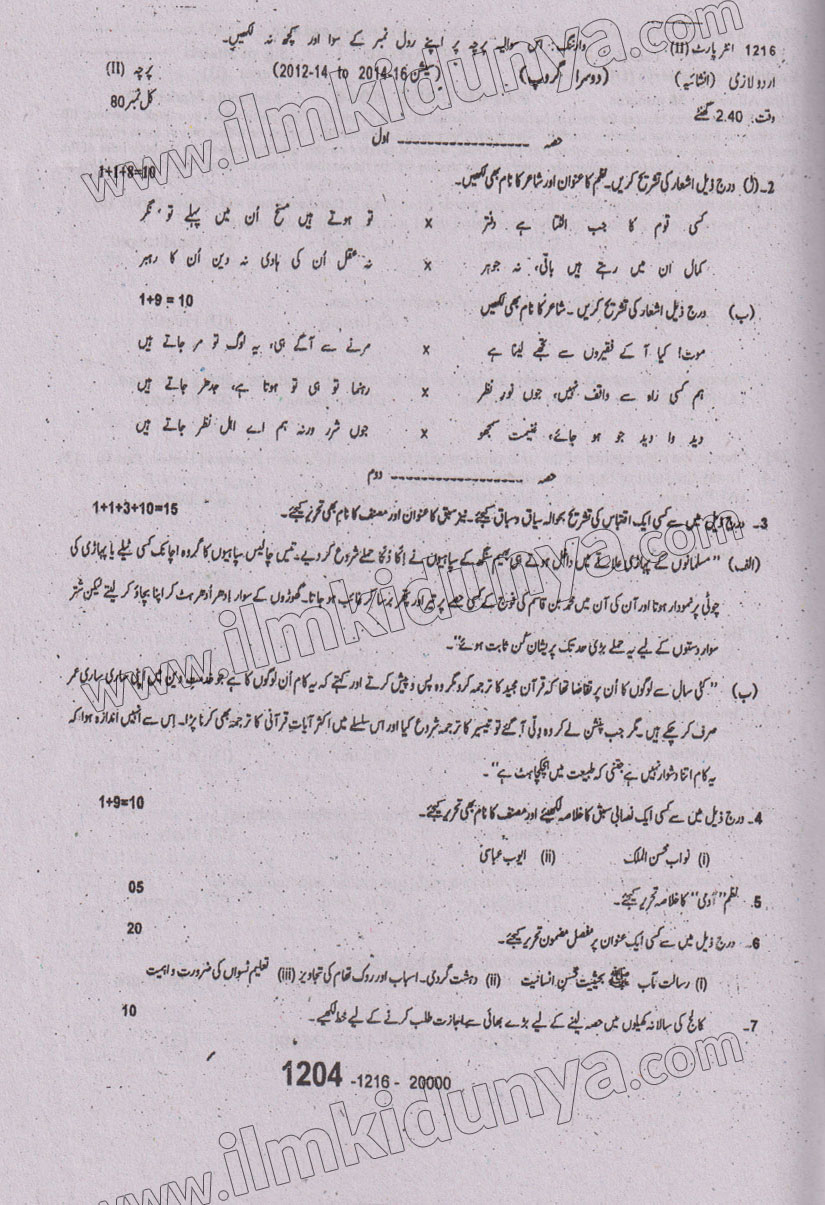 1216 انٹر پارٹ (II) وارننگ: اس سوالیہ پرچہ پر اپنے رول نمبر کے سوا اور کچھ نہ لکھیں۔
اردو لازمی (انشائیہ) (دوسرا گروپ) (سیشن 2012-14 to 2014-16) پرچہ (II)
وقت: 2.40 گھنٹے کل نمبر 80
حصہ ------------------ اول
2۔ (ا) درج ذیل اشعار کی تشریح کریں۔ نظم کا عنوان اور شاعر کا نام بھی لکھیں۔ 1+1+8=10
کسی قوم کا جب الٹتا ہے دفتر x تو ہوتے ہیں مسخ اُن میں پہلے تونگر
کمال ان میں رہتے ہیں باقی، نہ جوہر x نہ عقل اُن کی ہادی نہ دین اُن کا رہبر
(ب) درج ذیل اشعار کی تشریح کریں۔ شاعر کا نام بھی لکھیں 1+9 = 10
موت! کیا آ کے فقیروں سے تجھے لینا ہے x مرنے سے آگے ہی، یہ لوگ تو مر جاتے ہیں
ہم کسی راہ سے واقف نہیں، جوں نورِ نظر x رہنما تو ہی تو ہوتا ہے، جدھر جاتے ہیں
دید وا دید جو ہو جائے، غنیمت سمجھو x جوں شرر ورنہ ہم اے اہل نظر جاتے ہیں
حصہ ------------------ دوم
3۔ درج ذیل میں سے کسی ایک اقتباس کی تشریح بحوالہ سیاق و سباق کیجئے۔ نیز سبق کا عنوان اور مصنف کا نام بھی تحریر کیجئے۔ 1+1+3+10=15
(الف) "مسلمانوں کے پہاڑی علاقے میں داخل ہوتے ہی بھیم سنگھ کے سپاہیوں نے اِکّا دُکّا حملے شروع کر دیے۔ تیس چالیس سپاہیوں کا گروہ اچانک کسی ٹیلے یا پہاڑی کی
چوٹی پر نمودار ہوتا اور آن کی آن میں محمد بن قاسم کی فوج کے کسی حصے پر تیر اور پتھر برسا کر غائب ہو جاتا۔ گھوڑوں کے سوار اِدھر اُدھر ہٹ کر اپنا بچاؤ کر لیتے لیکن شتر
سوار دستوں کے لیے یہ حملے بڑی حد تک پریشان کُن ثابت ہوئے"۔
(ب) "کئی سال سے لوگوں کا اُن پر تقاضا تھا کہ قرآن مجید کا ترجمہ کرو مگر وہ پس و پیش کرتے اور کہتے کہ یہ کام اُن لوگوں کا ہے جو خدمتِ دین میں اپنی ساری ساری عمر
صرف کر چکے ہیں۔ مگر جب پنشن لے کر وہ دِلّی آ گئے تو تیسیر کا ترجمہ شروع کیا اور اس سلسلے میں اکثر آیاتِ قرآنی کا ترجمہ بھی کرنا پڑا۔ اِس سے اُنہیں اندازہ ہوا کہ
یہ کام اتنا دشوار نہیں ہے جتنی کہ طبیعت میں ہچکچاہٹ ہے"۔
4۔ درج ذیل میں سے کسی ایک نصابی سبق کا خلاصہ لکھیئے اور مصنف کا نام بھی تحریر کیجئے۔ 1+9=10
(i) نواب محسن الملک (ii) ایوب عباسی
5۔ نظم "آدمی" کا خلاصہ تحریر کیجئے۔ 05
6۔ درج ذیل میں سے کسی ایک عنوان پر مفصل مضمون تحریر کیجئے۔ 20
(i) رسالت مآب ﷺ بحیثیت محسنِ انسانیت (ii) دہشت گردی۔ اسباب اور روک تھام کی تجاویز (iii) تعلیم نسواں کی ضرورت و اہمیت
7۔ کالج کی سالانہ کھیلوں میں حصہ لینے کے لیے بڑے بھائی سے اجازت طلب کرنے کے لیے خط لکھیے۔ 10
1204 -1216 - 20000
www.ilmkidunya.com
www.ilmkidunya.com
www.ilmkidunya.com